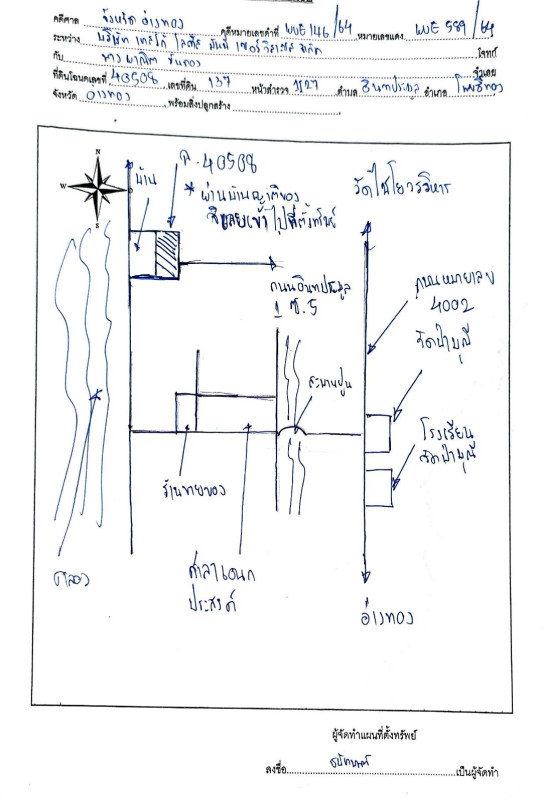 คดีศาล จังหวัด อ่างทอง คดีหมายเลขดำที่ ผบE146/64 หมายเลขแดง ผบE 589/64
ระหว่าง บริษัท เทสโก้ โลตัส มันนี่ เซอร์วิสเซส จำกัด โจทก์
กับ จำเลย
ที่ดินโฉนดเลขที่ 40508 เลขที่ดิน 137 หน้าสำรวจ 1127 ตำบล อินทประมูล อำเภอ โพธิ์ทอง
จังหวัด อ่างทอง พร้อมสิ่งปลูกสร้าง
N
W
S
บ้าน
ฉ.40508
* ผ่านบ้านญาติของ
จำเลยเข้าไปที่ตั้งทรัพย์
วัดไชโยวรวิหาร
ถนนอินทประมูล
1 ซ.5
ถนนหมายเลข
4002
วัดป่ามุณี
สะพานปูน
โรงเรียน
วัดป่ามุณี
ร้านขายของ
คลอง
ศาลาเอนก
ประสงค์
อ่างทอง
ผู้จัดทำแผนที่ตั้งทรัพย์
ลงชื่อ เป็นผู้จัดทำ